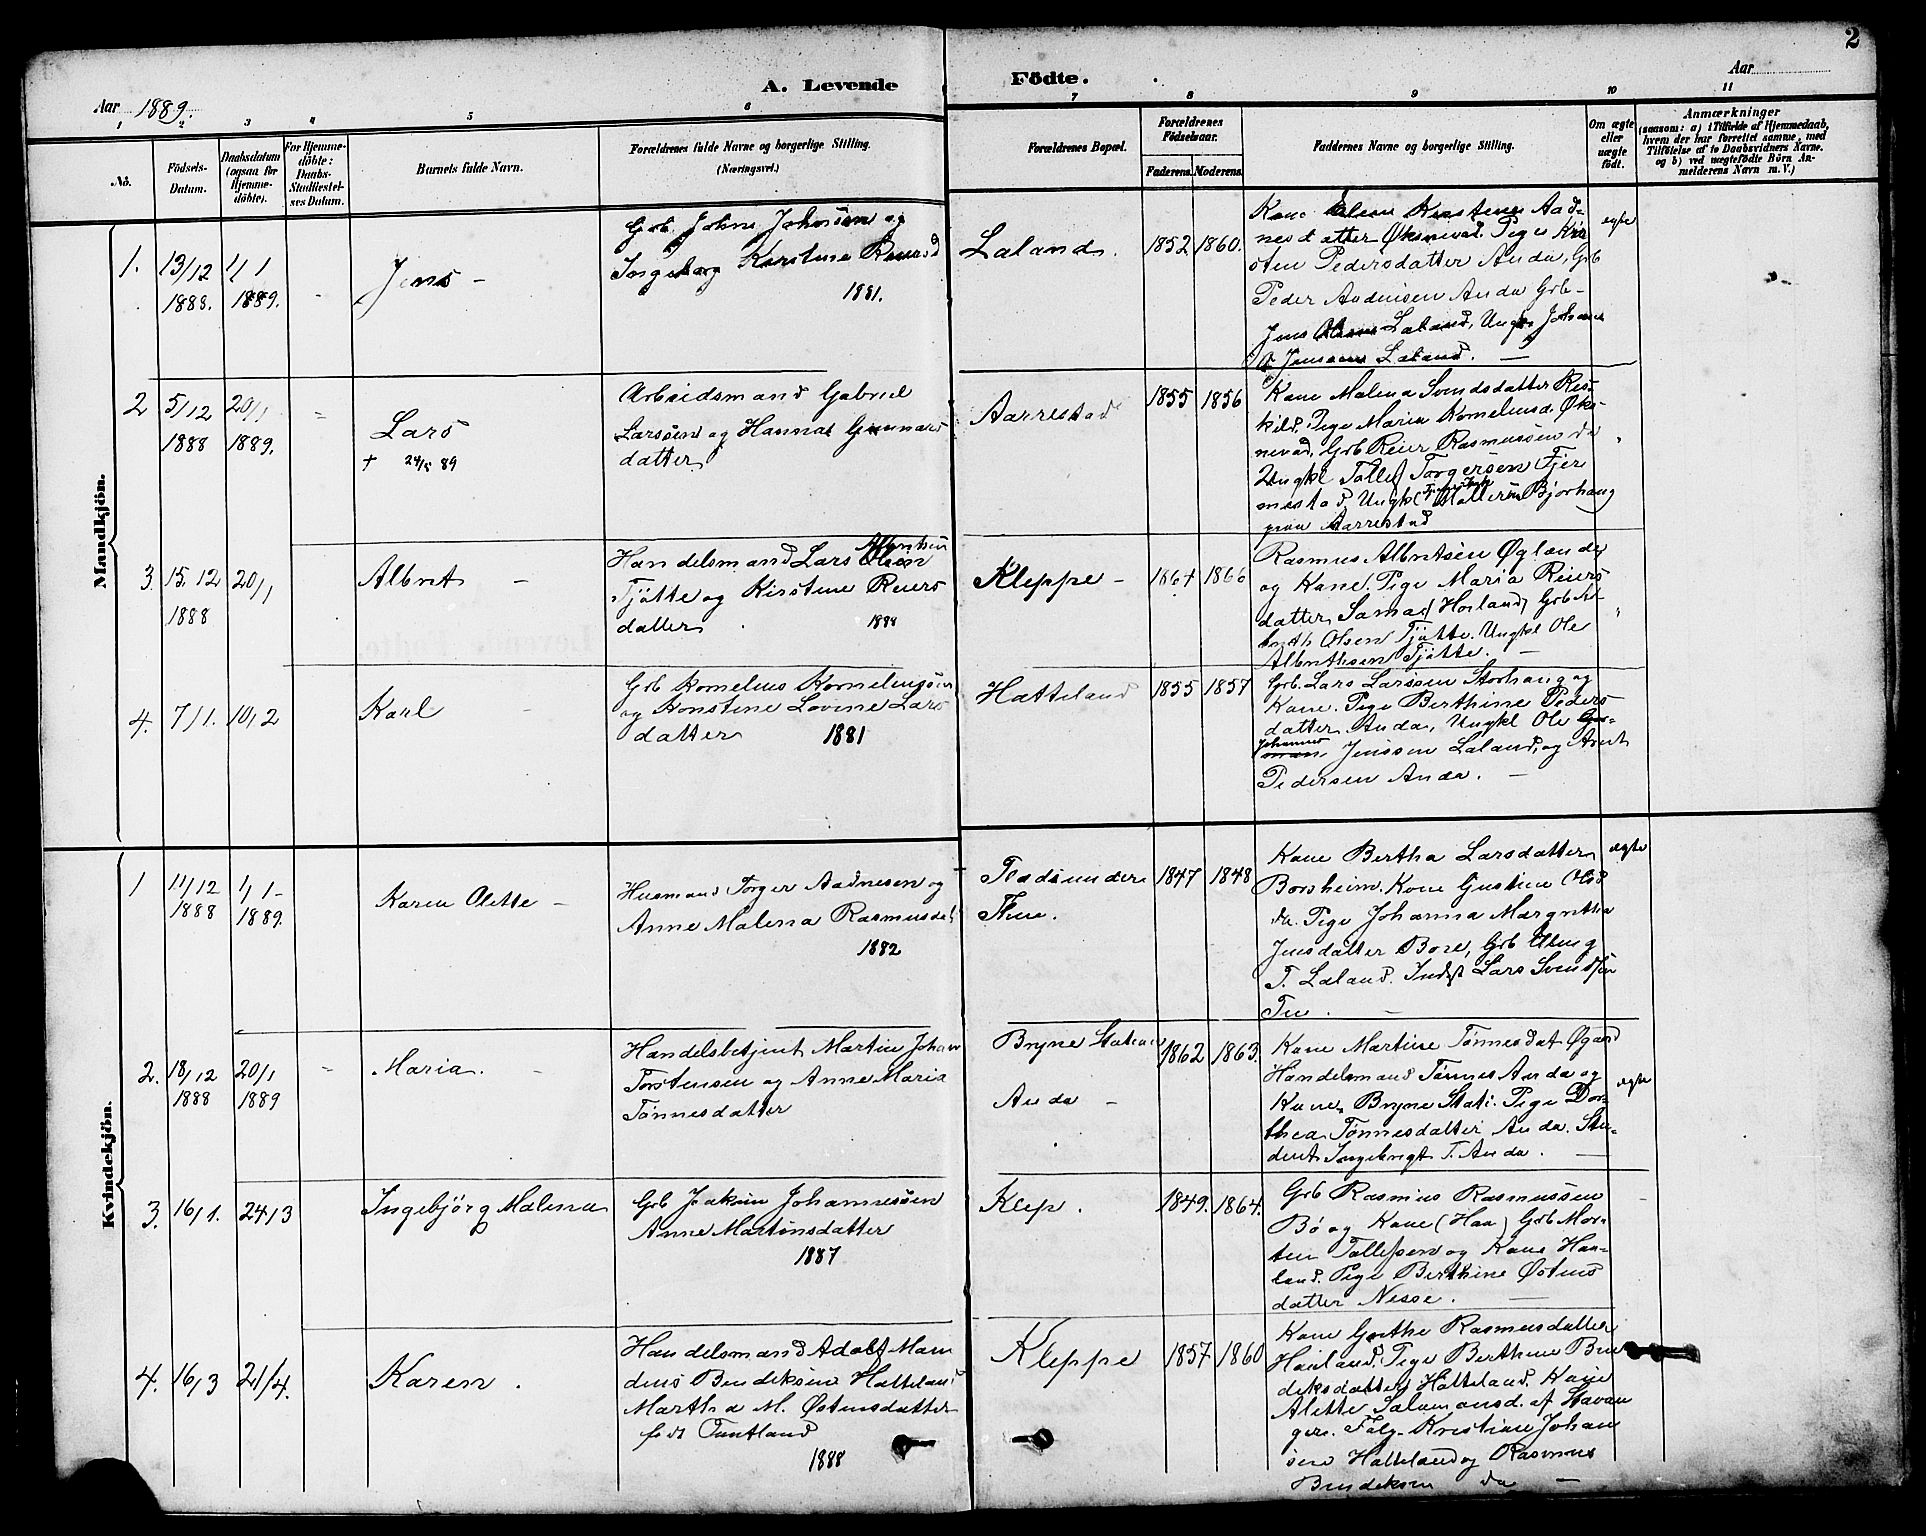 2
Aar 1889.
A. Levende Födte.
Aar
1 2 3 4 5 6 7 8 9 10 11
No.
Födsels-Datum.
Daabsdatum (ogsaa for Hjemme-döbte).
For Hjemme-döbte: Daabs-Stadfæstel-ses Datum.
Barnets fulde Navn.
Forældrenes fulde Navne og borgerlige Stilling.
(Næringsvei.)
Forældrenes Bopæl.
Forældrenes Födselsaar.
Faderens. Moderens.
Faddernes Navne og borgerlige Stilling.
Om ægte eller uægte födt.
Anmærkninger
(saasom: a) i Tilfælde af Hjemmedaab,
hvem der har forrettet samme, med
Tilföielse af to Daabsvidners Navne.
og b) ved uægtefödte Börn An-
melderens Navn m. V.)
Mandkjön.
1. 13/12 1888. 1/1 1889.
Jens -
Grb. Johns Johnsen og
Ingeborg Kirstine Reiersd
1881.
Laland.
1852 1860.
Kone Elen Kirstine Aad-
nesdatter Øksnevad. Pige Kir
sten Pedersdatter Anda, Grb
Peder Aadnesen Anda Grb-
Jens Laland, Johannes
Jenssen Laland. -
egte
2 5/12 1888 20/1 1889.
Lars
+ 24/5 89
Arbeidsmand Gabriel
Larssen og Hanna Gunnars
datter
Aarrestad
1855 1856
Kone Malena Svendsdatter Ros-
kild. Pige Maria Korneliusd. Øks-
nevad, Grb Reier Rasmussen da
Ungkl Tollef Torgersen Fjer
mestad, Ungkl Bjorhaug
paa Aarrestad
3. 15.12 1888 20/1
Albret -
Handelsmand Lars Olsen
Tjøtte og Kirstine Reiers
datter. 1888
Kleppe -
1864 1866
Rasmus Albretsen Øglænde
og Kone. Pige Maria Reiers
datter Sama (Horland) Grb Al
breth Olsen Tjøtte. Ungkl Ole
Albrethsen Tjøtte. -
4. 7/1. 10/2
Karl -
Grb Kornelius Korneliussen
og Konstine Lovine Lars
datter 1881
Hatteland
1855 1857
Grb. Lars Larssen Storhaug og
Kone. Pige Berthine Peders
datter Anda, Ungkl Ole
Johannes Jenssen Laland, og Arnt
Pedersen Anda. -
Kvindekjön.
1 11/12 1888 1/1- 1889.
Karen Olette -
Husmand Torger Aadnesen og
Anne Malena Rasmusdat
1882
Pladsunder
Thue.
1847 1848
Kone Bertha Larsdatter
Borsheim. Kone Gustien Olsd
da. Pige Johanna Margretha
Jensdatter Bore, Grb
T. Laland. Inderst Lars Svendsen
Tu. -
egte
2. 18/12 1888 20/1 1889
Maria. -
Handelsbetjent Martin Johan
Torstensen og Anne Maria
Tønnesdatter
Bryne Station
Anda -
1862 1863.
Kone Martine Tønnesdat Øgard
Handelsmand Tønnes Anda og
Kone, Bryne Stati. Pige Dor-
thea Tønnesdatter Anda. Stu-
dent Ingebrigt T. Anda. -
egte
3. 16/1. 24/3
Ingebjörg Malena
Grb Joakim Johannesen
Anne Martinsdatter
1887
Klep.
1849. 1864.
Grb Rasmus Rasmussen
Bö og Kone (Haa) Grb Mor-
ten Tollefsen og Kone Hau-
land. Pige Berthine Østens
datter Nesse. -
4. 16/3 21/4.
Karen.
Handelsmand Adolf Man
dius Bendiksen Hatteland
Martha M. Østensdatter
født Tuntland
1888
Kleppe
1857 1860
Kone Grethe Rasmusdatter
Hauland. Pige Berthine Ben
diksdatter Hatteland. Kone
Alette Salamonsd. af Stavan
ger. Kristian Johan
sen Hatteland og Rasmus
Bendiksen da -